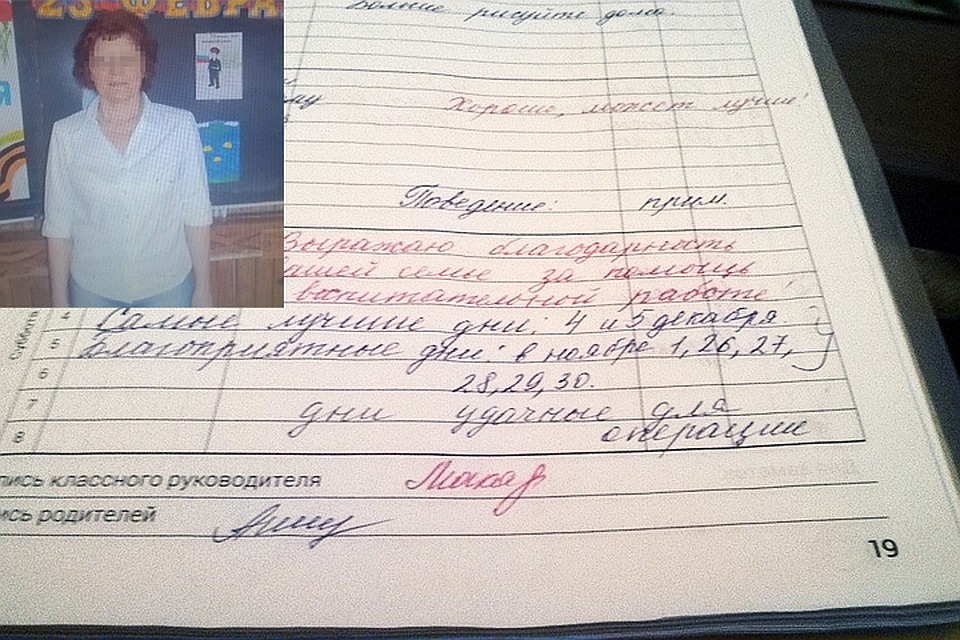 23 ФЕВРА
Больше рисуйте дома.
Хорошо, может лучше!
Поведение: прим.
Выражаю благодарность
вашей семье за помощь
воспитательной работе!
суббота
4
Самые лучшие дни: 4 и 5 декабря
5
Благоприятные дни: в ноябре 1, 26, 27,
6
28, 29, 30.
7
дни удачные для
операции
8
пись классного руководителя
ись родителей
19